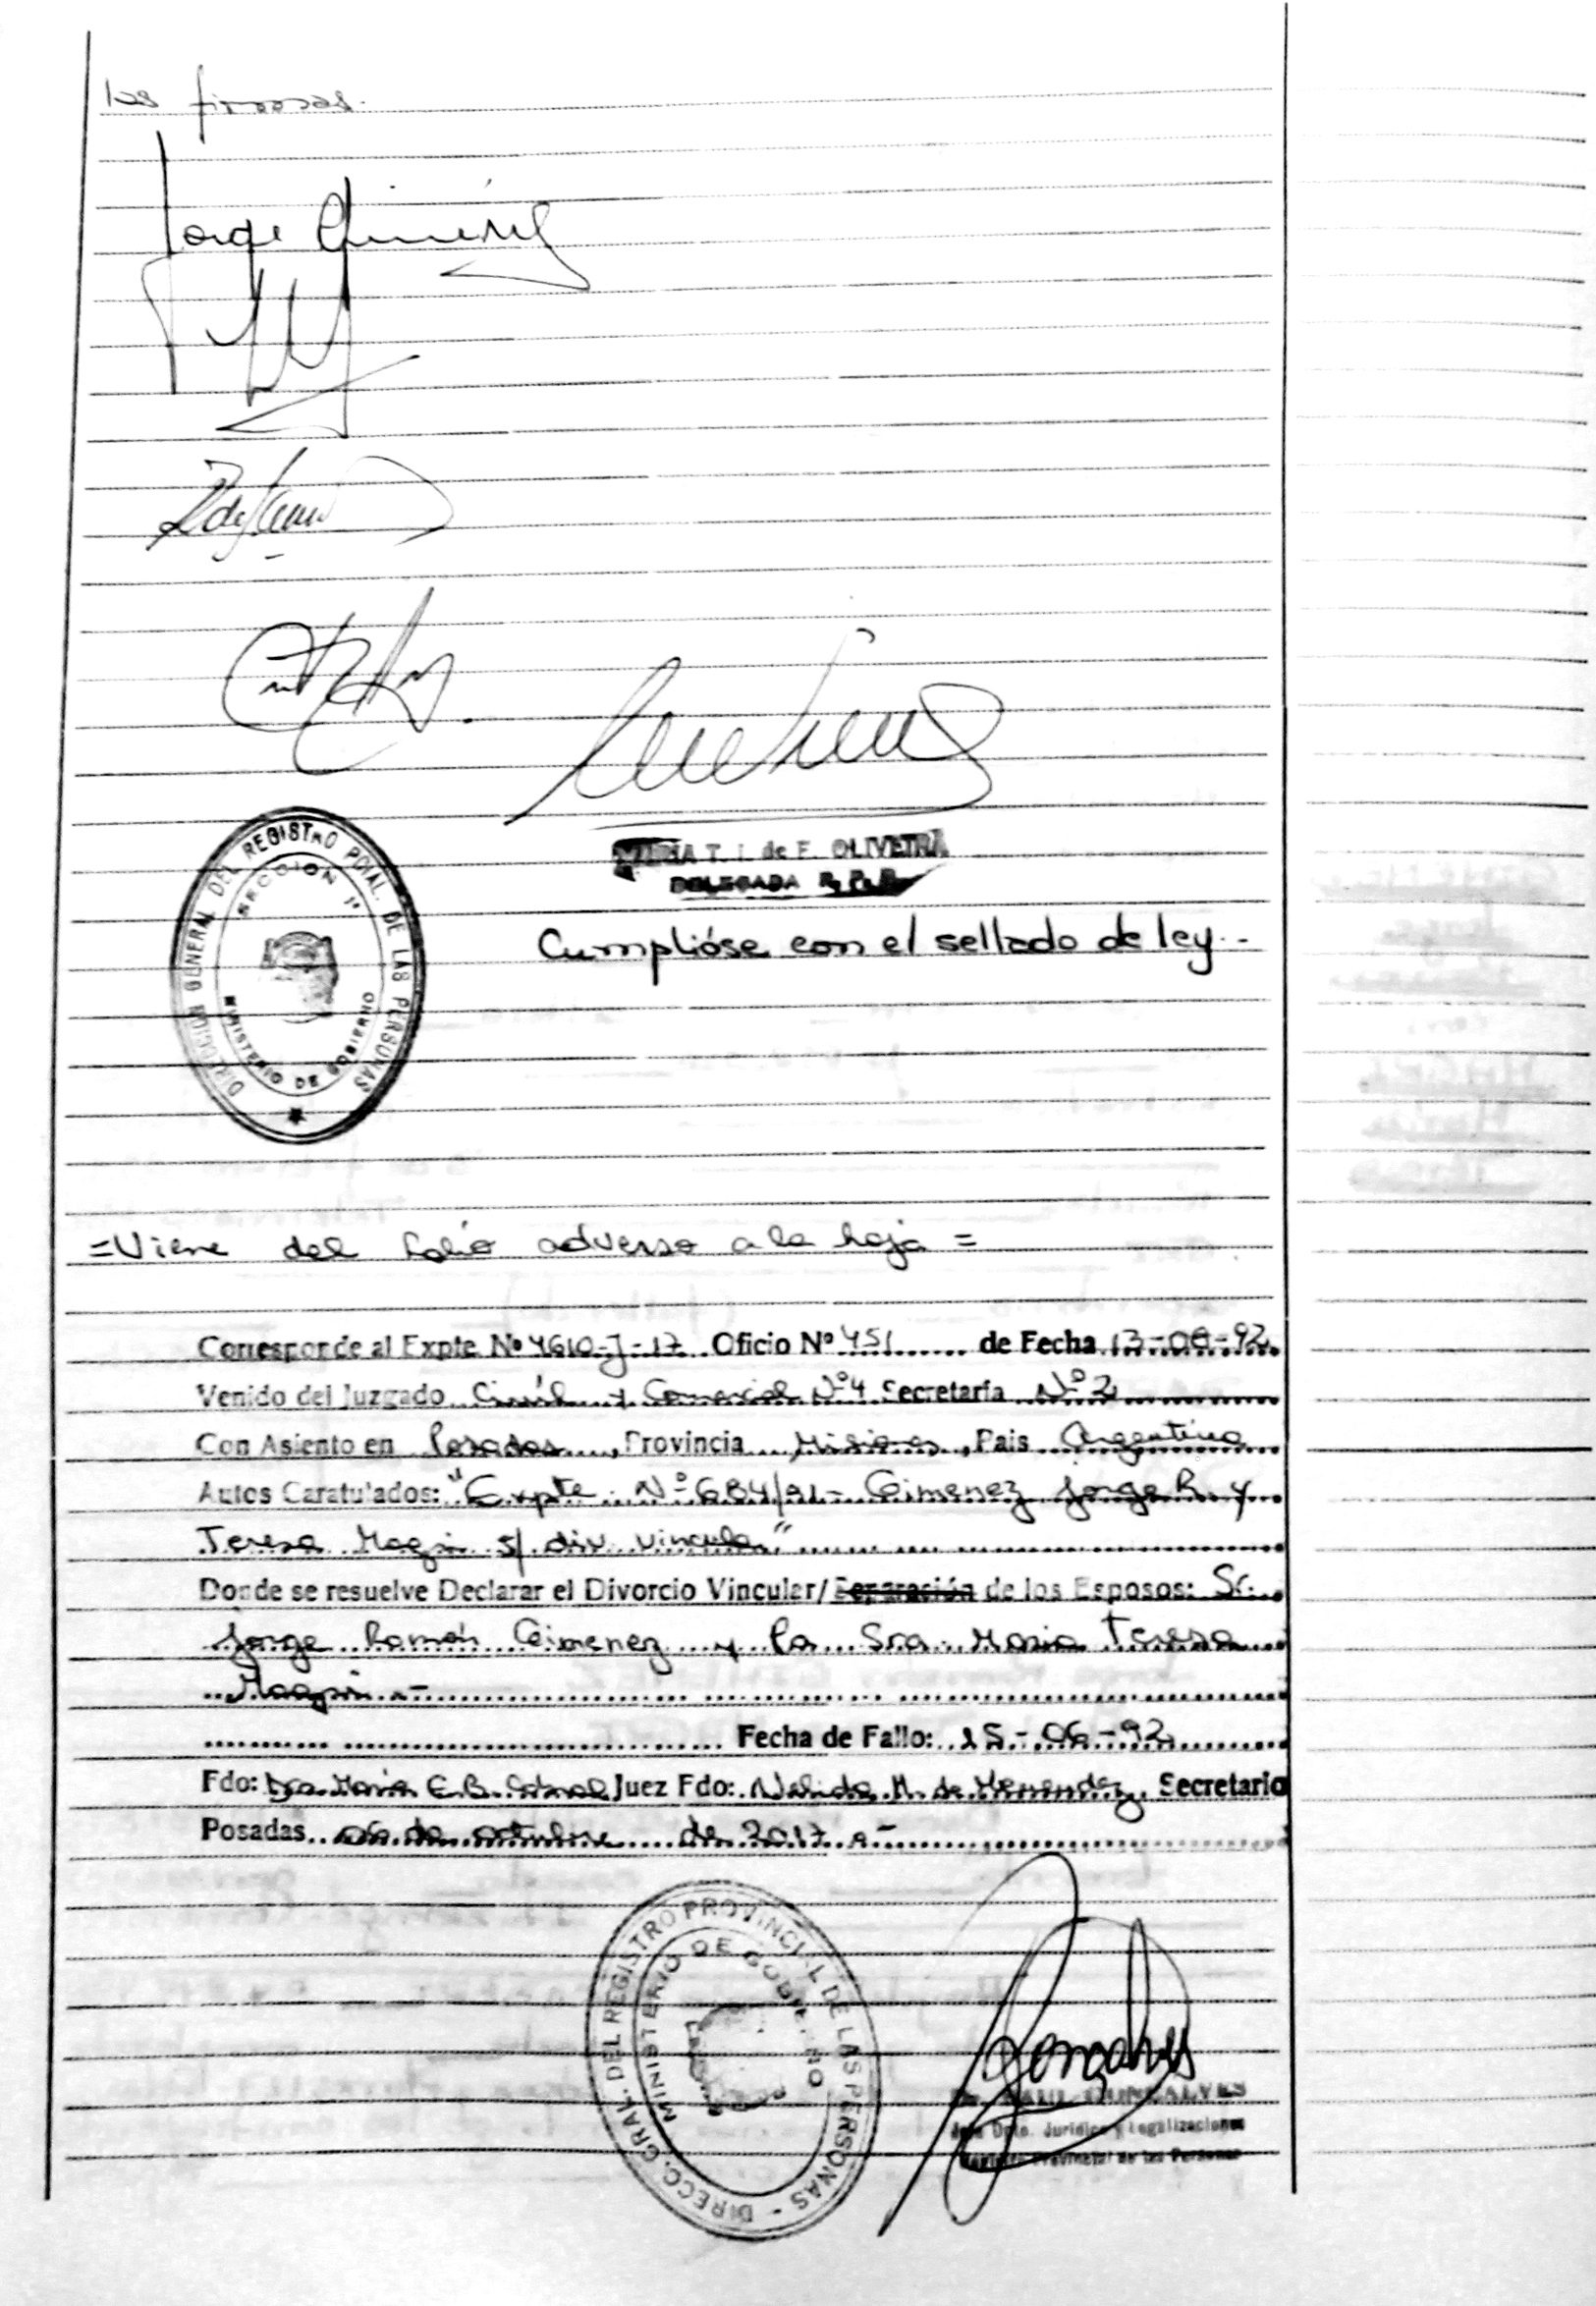 las firmas.
Jorge Gimenez
MARIA T. I. de F. OLIVEIRA
DELEGADA R. P. P.
Cumplióse con el sellado de ley.-
DIRECCION GENERAL DEL REGISTRO PCIAL. DE LAS PERSONAS
SECCION 1ª
MINISTERIO DE GOBIERNO
=Viene del folio adverso a la hoja=
Corresponde al Expte Nº 4610-J-17 Oficio Nº 451 de Fecha 13-08-92
Venido del Juzgado Civil y Comercial Nº4 Secretaría Nº2
Con Asiento en Posadas, Provincia Misiones, Pais Argentina
Autos Caratulados: "Expte. Nº 684/91- Gimenez Jorge R. y
Teresa s/ div. vincular"
Donde se resuelve Declarar el Divorcio Vincular/Separación de los Esposos: Sr.
Jorge Ramón Gimenez y la Sra. Maria Teresa
Fecha de Fallo: 15-06-92
Fdo: Dra Maria E.B. Juez Fdo: Nelida M. de Menendez, Secretario
Posadas 06 de octubre de 2017.-
DIRECC. GRAL. DEL REGISTRO PROVINCIAL DE LAS PERSONAS -
MINISTERIO DE GOBIERNO
GONCALVES
Jefe Dpto. Jurídico y Legalizaciones
Registro Provincial de las Personas